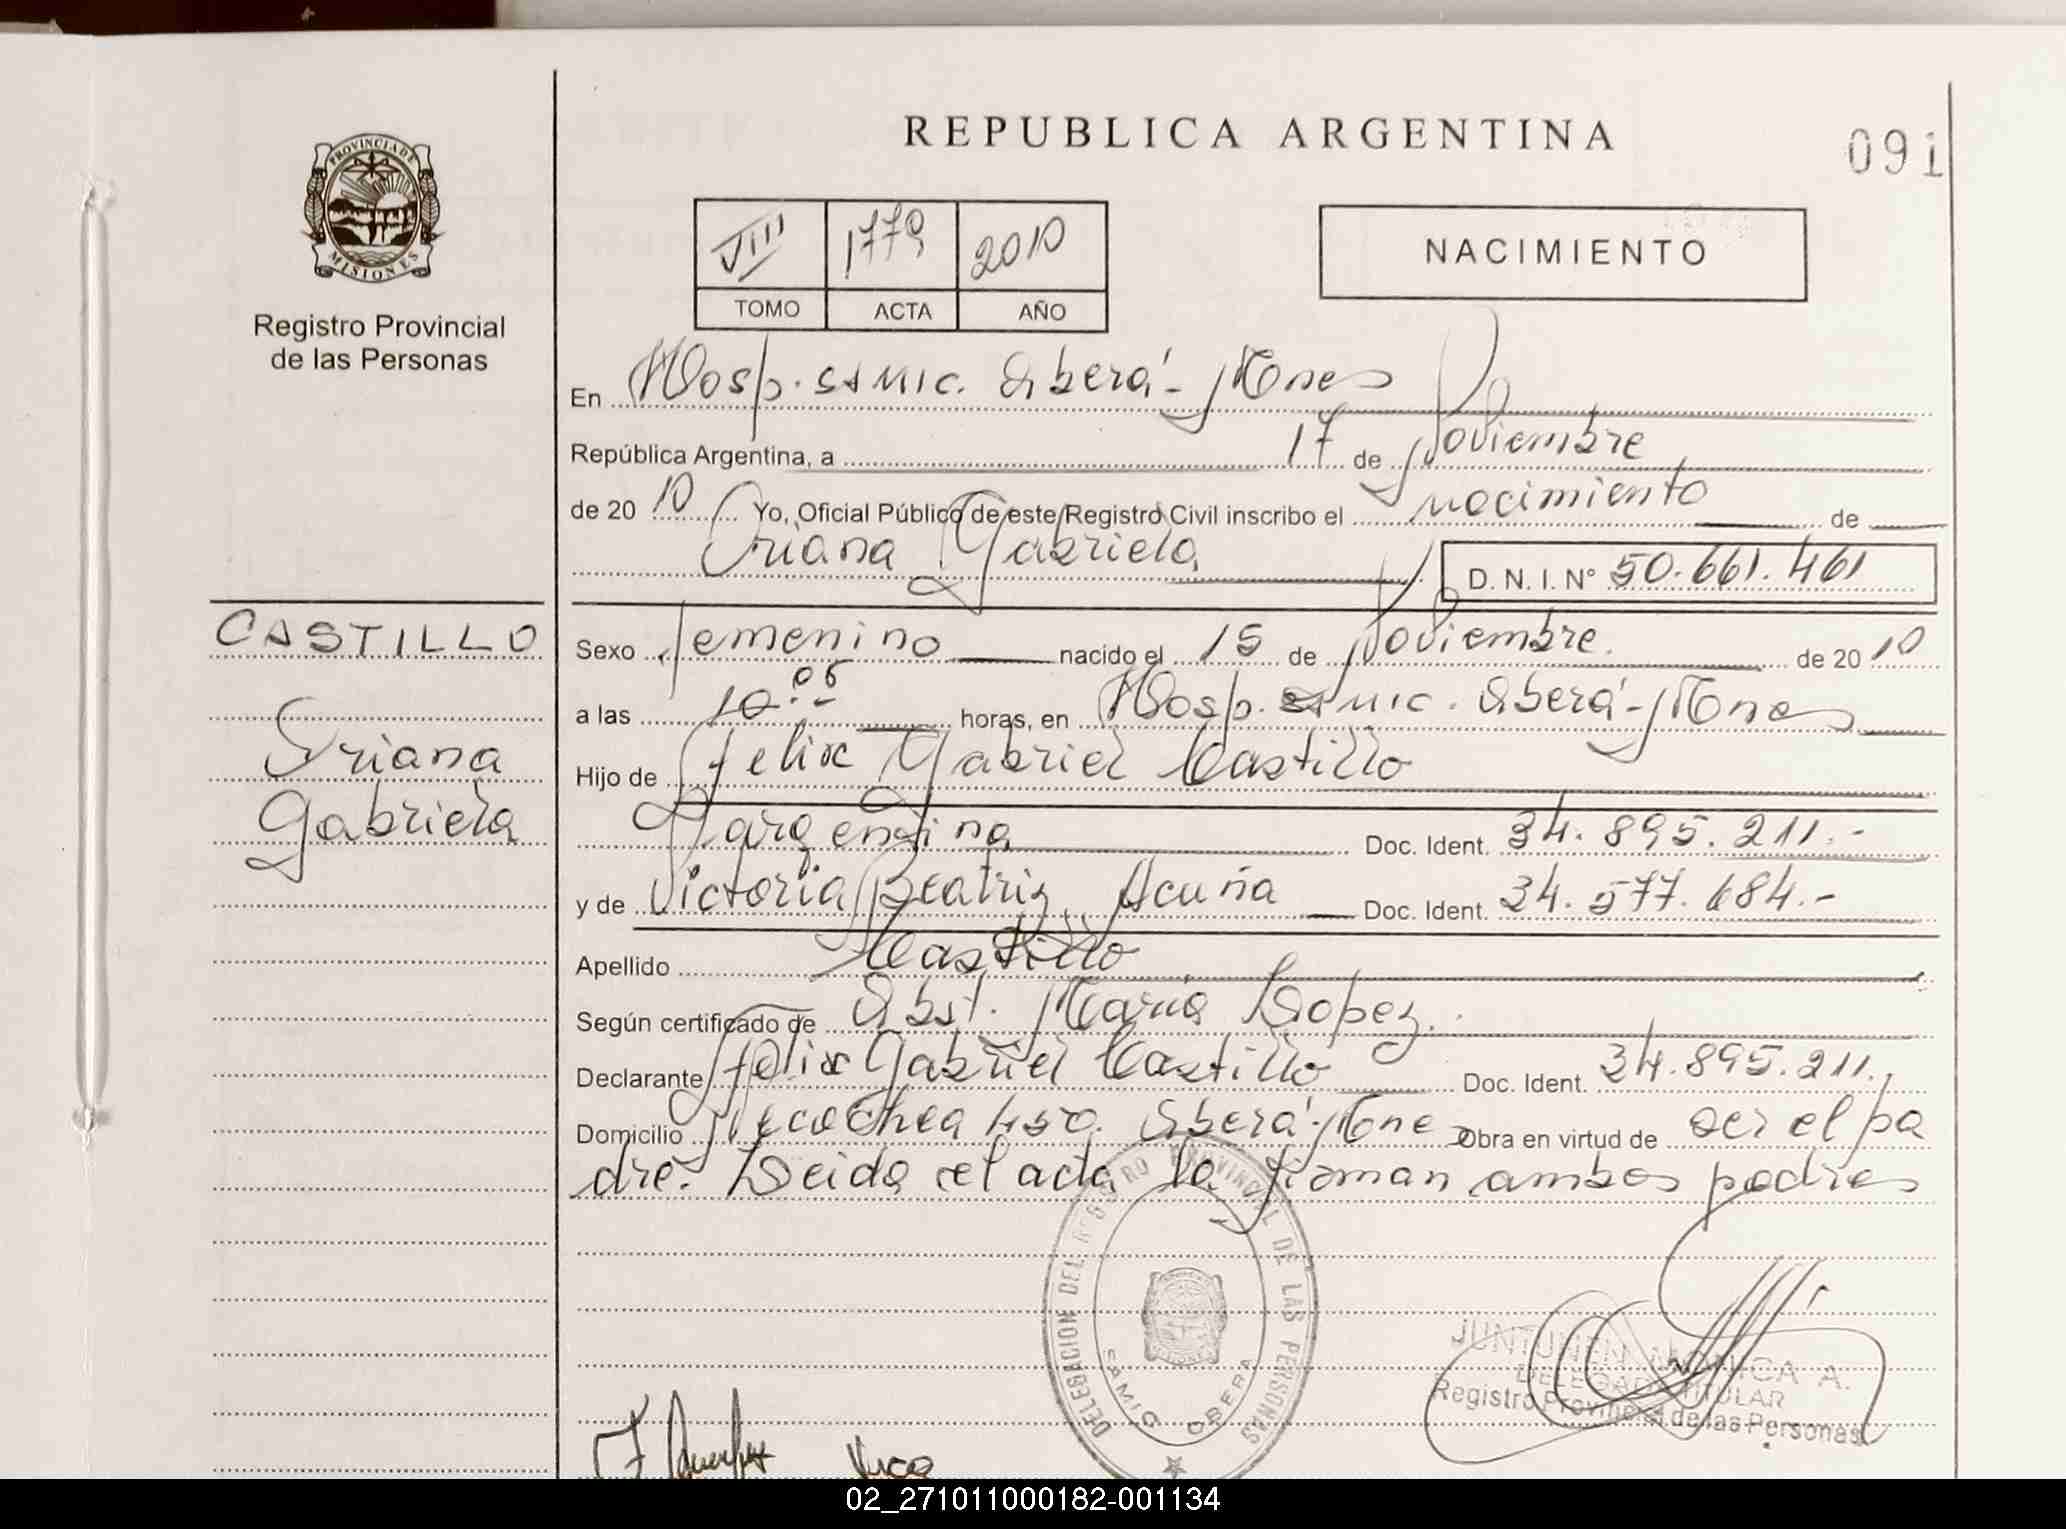 REPUBLICA ARGENTINA
091
PROVINCIA DE MISIONES
Registro Provincial
de las Personas
VIII 1779 2010
TOMO ACTA AÑO
NACIMIENTO
En Hosp. SAMIC. Oberá - Mnes
República Argentina, a 17 de Noviembre
de 20 10 Yo, Oficial Público de este Registro Civil inscribo el nacimiento de
Oriana Gabriela
D. N. I. Nº 50.661.461
CASTILLO
Oriana
Gabriela
Sexo femenino nacido el 15 de Noviembre. de 20 10
a las 10:05 horas, en Hosp. SAMIC. Oberá - Mnes
Hijo de Felix Gabriel Castillo
argentina Doc. Ident. 34.895.211.-
y de Victoria Beatriz Acuña Doc. Ident. 34.577.684.-
Apellido Castillo
Según certificado de Obst. María Lopez.
Declarante Felix Gabriel Castillo Doc. Ident. 34.895.211.
Domicilio Necochea Oberá - Mnes Obra en virtud de ser el pa
dre. Leida el acta la firman ambos padres
DELEGACION DEL REGISTRO PROVINCIAL DE LAS PERSONAS
SAMIC OBERA
JUNTUNEN MONICA A.
DELEGADA TITULAR
Registro Provincial de las Personas
02_271011000182-001134